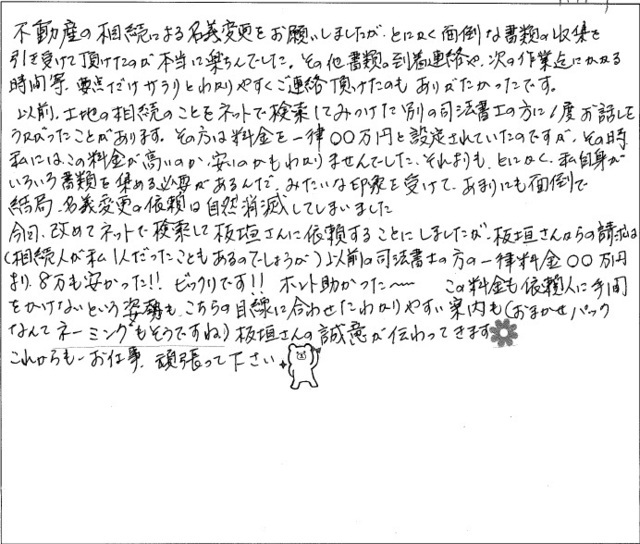 不動産の相続による名義変更をお願いしましたが、とにかく面倒な書類の収集を
引き受けて頂けたのが本当に楽ちんでした。その他書類の到着連絡や、次の作業迄にかかる
時間等、要点だけサラリとわかりやすくご連絡頂けたのもありがたかったです。
以前、土地の相続のことをネットで検索してみつけた別の司法書士の方に1度お話しを
うかがったことがあります。その方は料金を一律〇〇万円と設定されていたのですが、その時
私にはこの料金が高いのか、安いのかもわかりませんでした、それよりも、とにかく、私自身が
いろいろ書類を集める必要があるんだ、みたいな印象を受けて、あまりにも面倒で
結局、名義変更の依頼は自然消滅してしまいました
今回、改めてネットで検索して板垣さんに依頼することにしましたが、板垣さんからの請求は
(相続人が私1人だったこともあるのでしょうが)以前の司法書士の方の一律料金〇〇万円
より、8万も安かった!! ビックリです!! ホント助かった〜 この料金も依頼人に手間
をかけないという姿勢も、こちらの目線に合わせたわかりやすい案内も(おまかせパック
なんてネーミングもそうですね)板垣さんの誠意が伝わってきます
これからも、お仕事、頑張って下さい